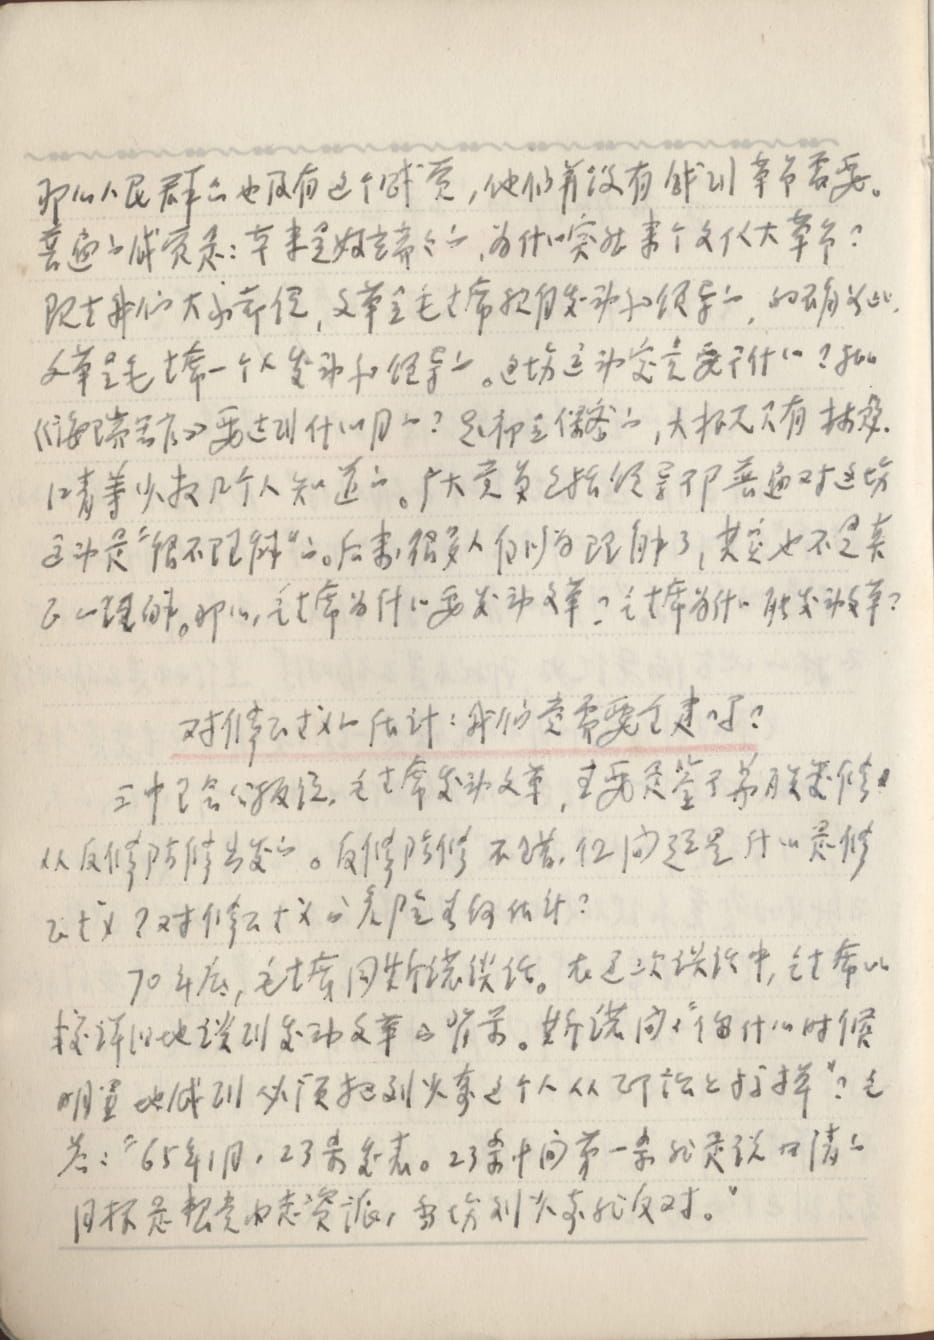 那么人民群众也没有这个感觉，他们并没有感到革命需要。
普遍的感觉是：本来是好端端的，为什么突然来个文化大革命？
现在我们大家都说，文革是毛主席亲自发动和领导的，的确如此，
文革是毛主席一个人发动和领导的。这场运动究竟要干什么？批
《海瑞罢官》要达到什么目的？起初是保密的，大概只有林彪、
江青等少数几个人知道的。广大党员包括领导干部普遍对这场
运动是“很不理解”的。后来，很多人自以为理解了，其实也不是真
正的理解。那么，毛主席为什么要发动文革？毛主席为什么能发动文革？
对修正主义的估计：我们党需要重建吗？
三中全会公报说，毛主席发动文革，主要是鉴于苏联变修，
从反修防修出发的。反修防修不错，但问题是什么是修
正主义？对修正主义的危险如何估计？
70年底，毛主席同斯诺谈话。在这次谈话中，毛主席比
较详细地谈到发动文革的背景。斯诺问：“你什么时候
明显地感到必须把刘少奇这个人从政治上搞掉”？毛
答：“65年1月，23条发表。23条中间第一条就是说四清的
目标是整党内走资派，当场刘少奇就反对。”